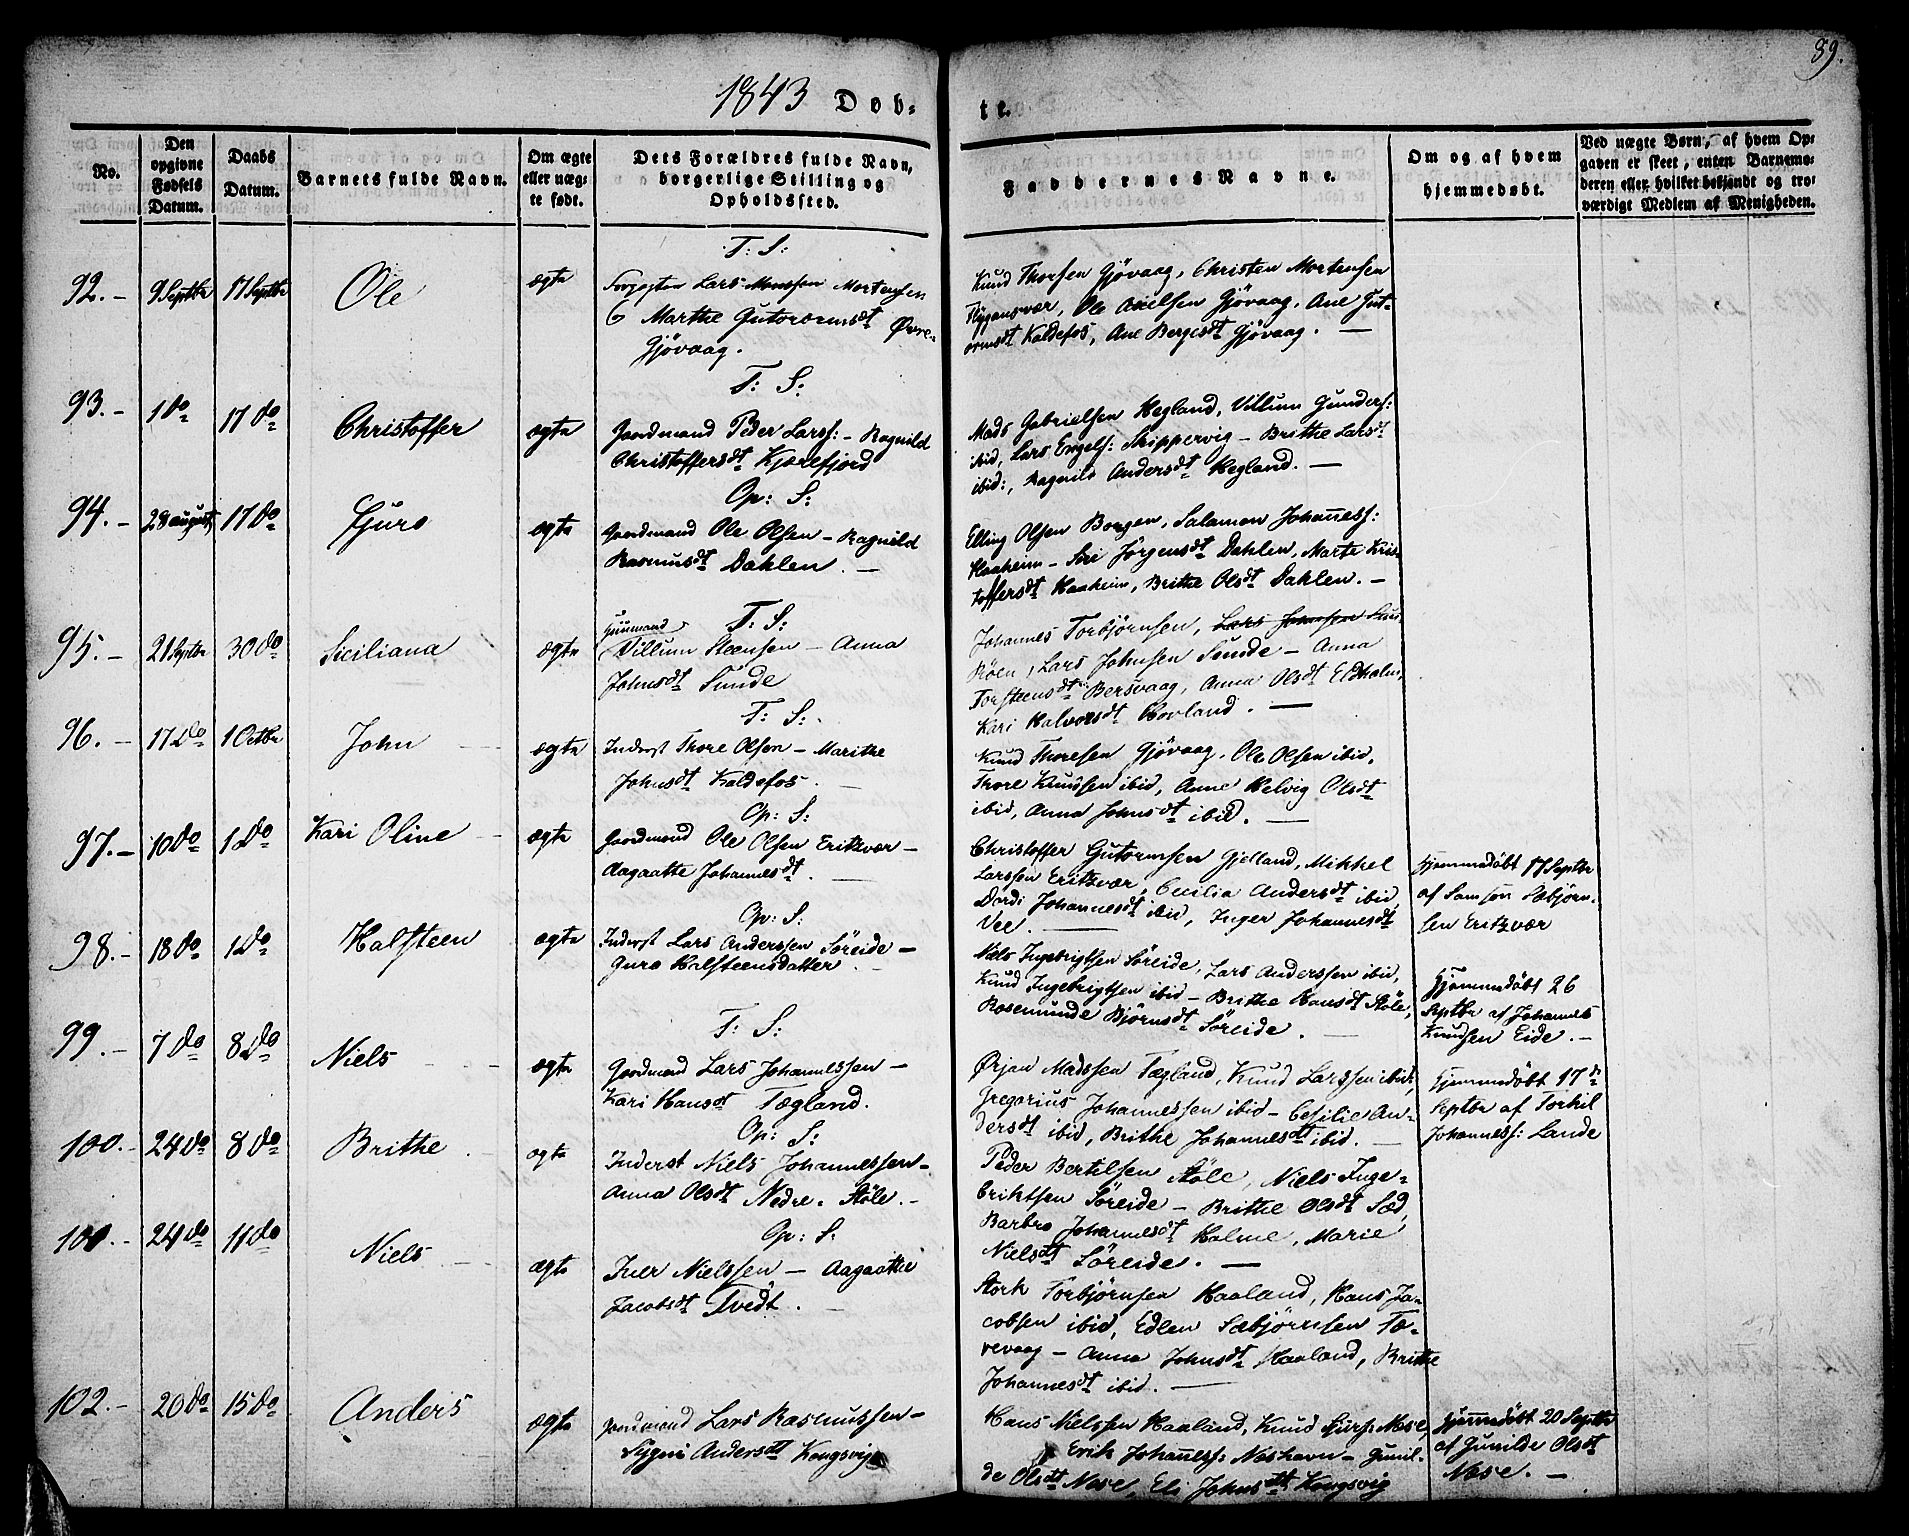 89.
1843 Døb-
te.
No.
Den opgivne Fødsels Datum.
Daabs Datum.
Barnets fulde Navn.
Om ægte eller uægte født.
Dets Forældres fulde Navn, borgerlige Stilling og Opholdssted.
Faddernes Navne.
Om og af hvem hjemmedøbt.
Ved uægte Børn, af hvem Opgaven er skeet, enten Barnemoderen eller hvilket bekjendt og troværdigt Medlem af Menigheden.
T: S:
92.- 9 Septbr 17 Septbr Ole ægte
Lars Monssen Mortensen
Marthe Gutormsdt Øvre
Gjøvaag.
Knud Thorsen Gjøvaag, Christen Mortensen
Flygansvær, Ole Axelsen Gjøvaag, Ane Gut-
ormsdt Kaldefos, Ane Bergesdt Gjøvaag. -
T: S:
93.- 1 do 17 do Christoffer ægte
Gaardmand Peder Larss: - Ragnild
Christoffersdt Kjærefjord
Mads Gabrielsen Hegland, Villum Gunders:
ibid, Lars Engels: Skippervig - Brithe Larsdt
ibid:, Ragnild Andersdt Hegland. -
Op: S:
94.- 28 august 17 do Gjuro ægte
Gaardmand Ole Olsen - Ragnild
Rasmusdt Dahlen. -
Elling Olsen Borgen, Salamon Johaness:
Haaheim - Siri Jørgensdt Dahlen, Marte Kris-
toffersdt Haaheim, Brithe Olsdt Dahlen. -
T: S:
95.- 21 Septbr 30 do Siciliana ægte
Huusmand
Villum Steensen - Anna
Johnsdt Sunde
Johannes Torbjørnsen, Lars Johnsen
Røen, Lars Johnsen Sunde - Anna
Torsteensdt Bersvaag, Anna Olsdt Eldholm,
Kari Halvorsdt Hovland. -
T: S:
96.- 17 do 1 Octbr John ægte
Inderst Thore Olsen - Marithe
Johnsdt Kaldefos.
Knud Thoresen Gjøvaag, Ole Olsen ibid,
Thore Knudsen ibid, Anne Helvig Olsdt
ibid, Anna Johnsdt ibid. -
Op: S:
97.- 10 do 1 do Kari Oline ægte
Gaardmand Ole Olsen Eritzvær -
Aagaathe Johannesdt.
Christoffer Gutormsen Gjelland, Mikkel
Larssen Eritzvær, Cecilia Andersdt ibid,
Dordi Johannesdt ibid, Inger Johannesdt
Vee.
Hjemmedøbt 17 Septbr
af Samson Sæbjørn-
sen Eritzvær
Op: S:
98.- 18 do 1 do Halsteen ægte
Inderst Lars Anderssen Søreide -
Guro Halsteensdatter.
Niels Ingebrigtsen Søreide, Lars Anderssen ibid,
Knud Ingebrigtsen ibid - Brithe Hansdt Støle,
Rosemunde Bjørnsdt Søreide. -
Hjemmedøbt 26
Septbr af Johannes
Knudsen Eide. -
T: S:
99.- 7 do 8 do Niels ægte
Gaardmand Lars Johannessen -
Kari Hansdt Tægland.
Ørjan Madssen Tægland, Knud Larssen ibid,
Gregorius Johannessen ibid - Cesilie An-
dersdt ibid, Brithe Johannesdt ibid. -
Hjemmedøbt 17 d
Septbr af Torkil
Johanness: Lande
Op: S:
100.- 24 do 8 do Brithe ægte
Inderst Niels Johannessen -
Anna Olsdt Nedre-Støle. -
Peder Bertilsen Støle, Niels Inge-
briktsen Søreide - Brithe Olsdt Sæd,
Barbro Johannesdt Holme, Marie
Nielsdt Søreide. -
Op: S:
101.- 24 do 11 do Niels ægte
Iver Nielssen - Aagaathe
Jacobsdt Tvedt.
Stork Torbjørnsen Haaland, Hans Ja-
cobsen ibid, Edlen Sæbjørnsen To-
revaag - Anna Johnsdt Haaland, Brithe
Johannesdt ibid. -
102.- 20 do 15 do Anders ægte
Gaardmand Lars Rasmussen -
Sygni Andersdt Kongsvig
Hans Nielssen Haaland, Knud Siurs: Næse,
Erik Johaness: Næshavn - Gunil-
de Olsdt Næse, Eli Johnsdt Kongsvig
Hjemmedøbt 20 Septbr
af Gunilde Olsdt
Næse. -